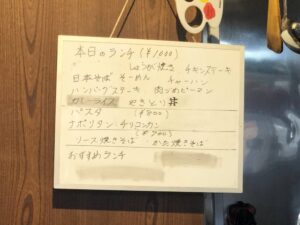 本日のランチ(¥1000)
しょうが焼き チキンステーキ
日本そば そーめん チャーハン
ハンバグステーキ 肉づめピーマン
カレーライス やきとり丼
パスタ (¥800)
ナポリタン・チリコンカン
(¥700)
ソース焼きそば かた焼きそば
おすすめランチ